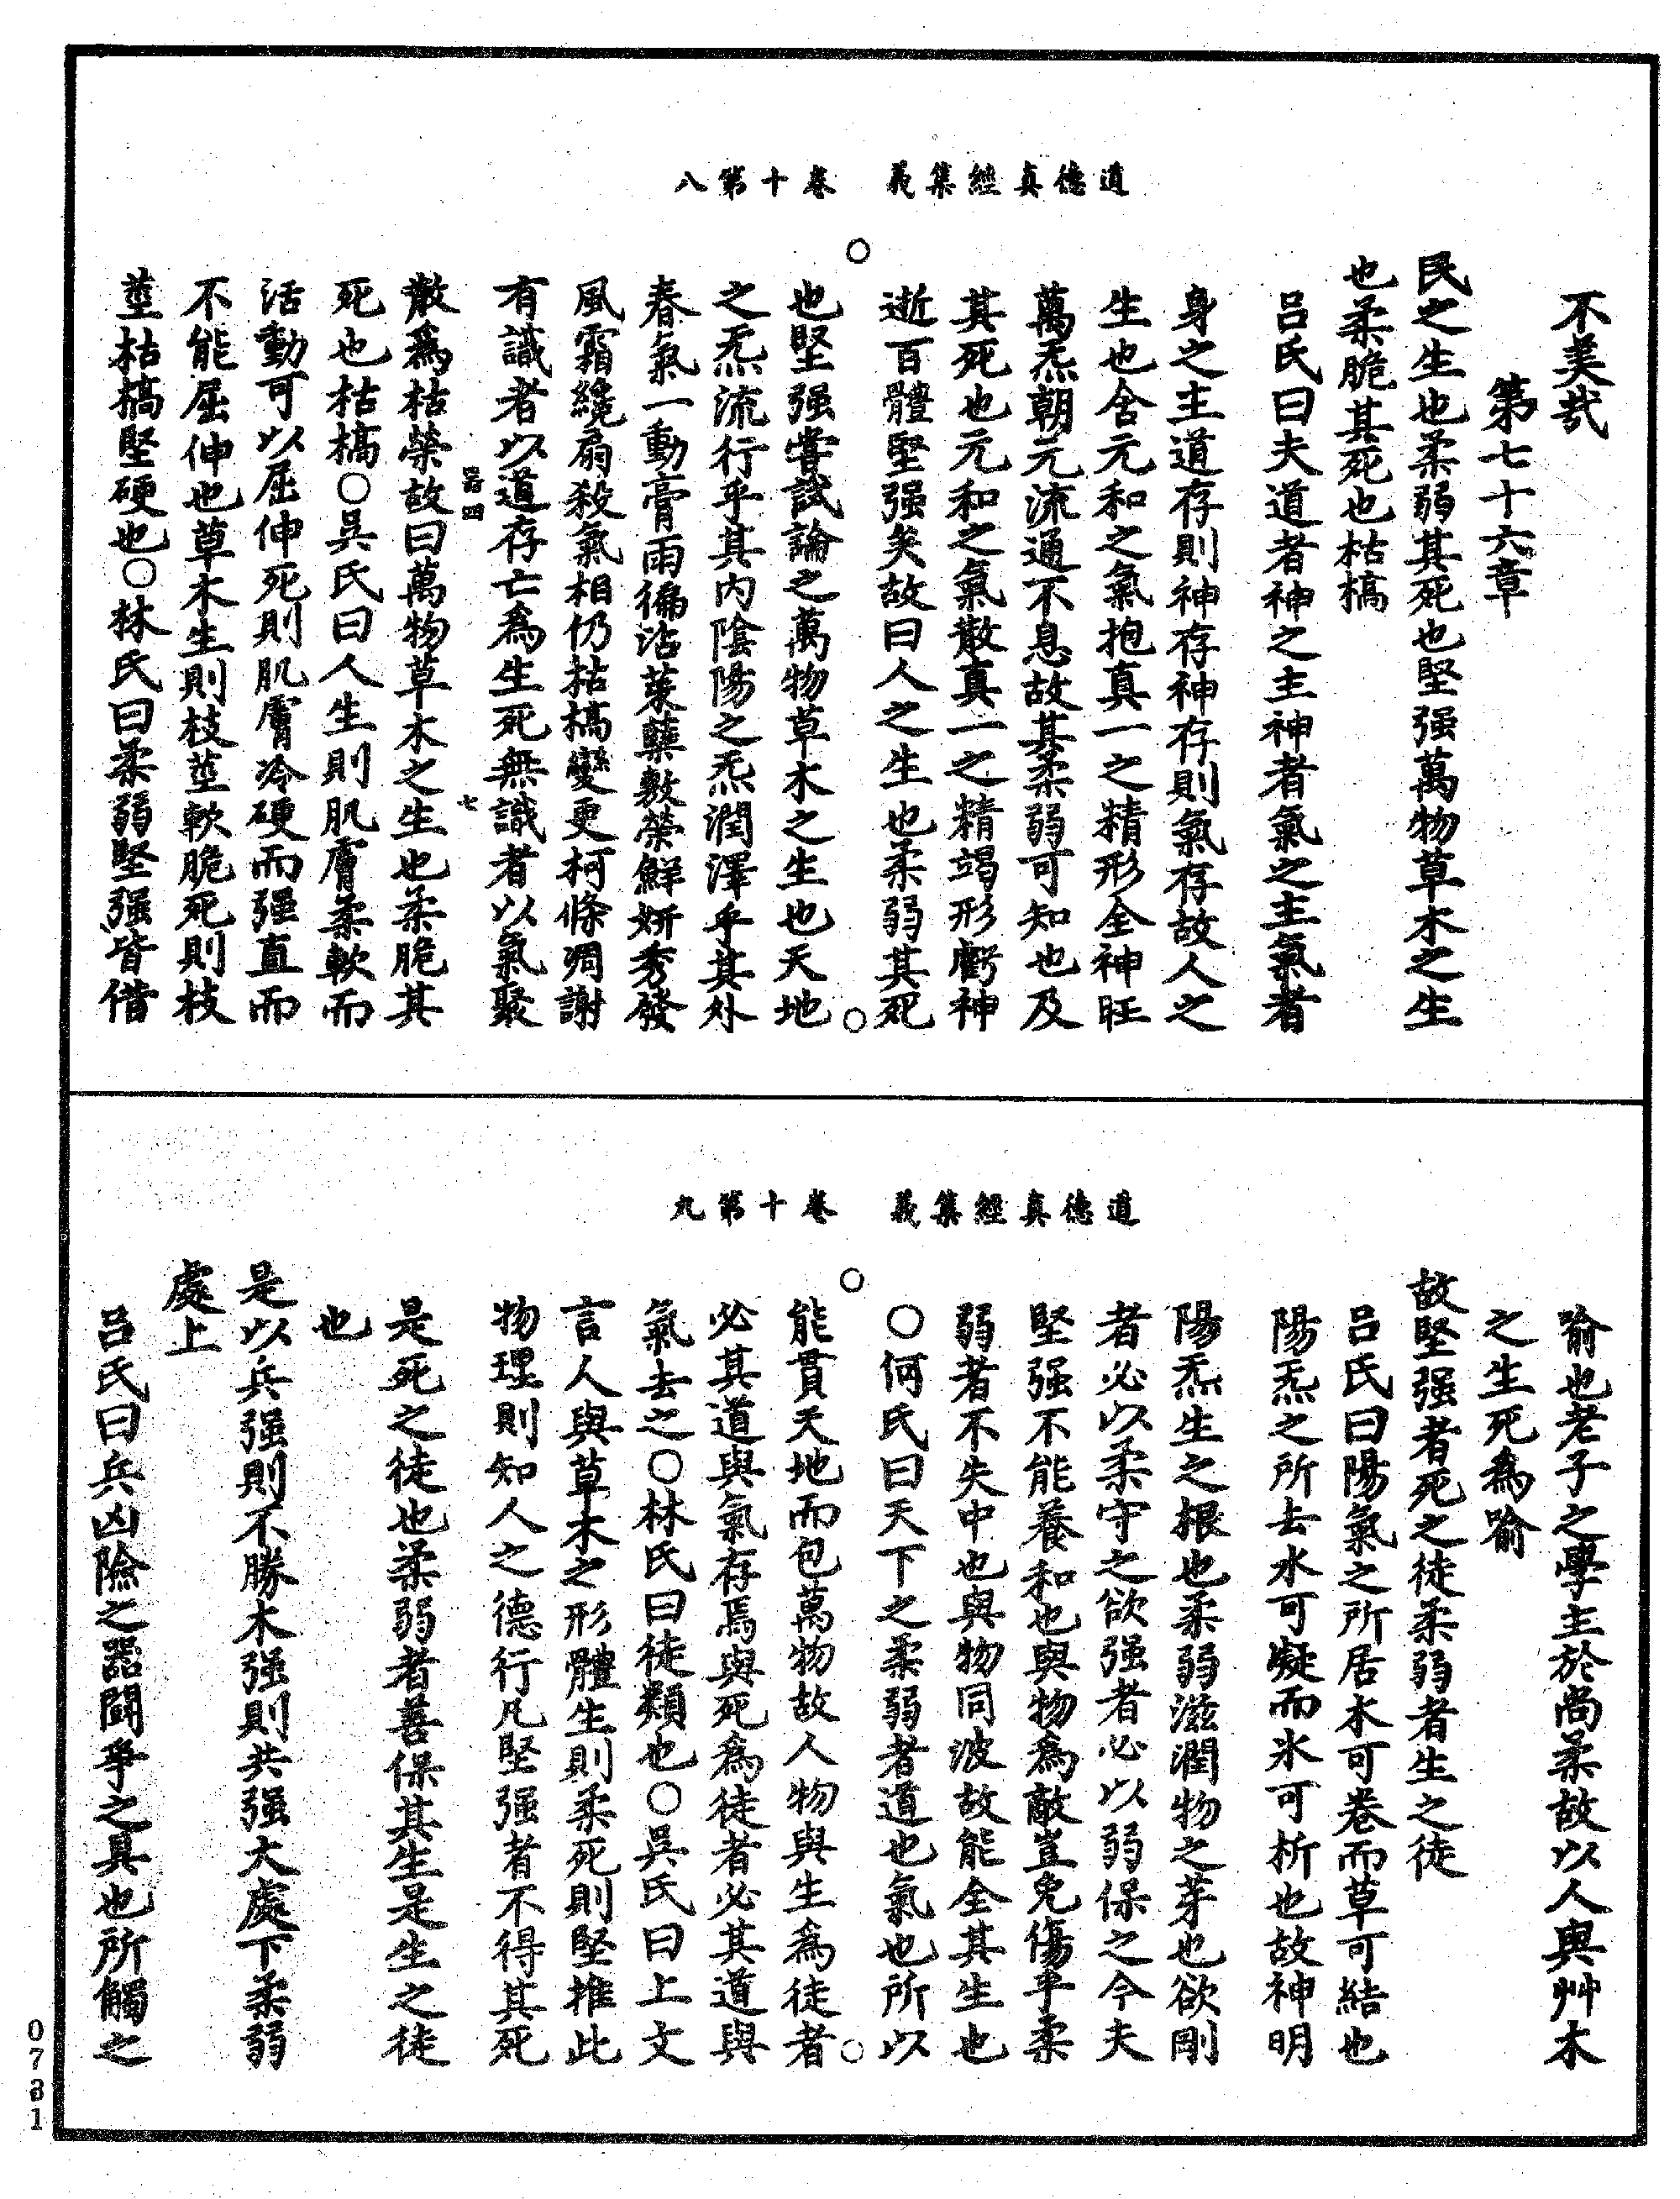 道德真經集義　卷十第八
不美哉
第七十六章
民之生也柔弱其死也堅强萬物草木之生
也柔脆其死也枯槁
吕氏曰夫道者神之主神者氣之主氣者
身之主道存則神存神存則氣存故人之
生也含元和之氣抱真一之精形全神旺
萬炁朝元流通不息故其柔弱可知也及
其死也元和之氣散真一之精竭形虧神
逝百體堅强矣故曰人之生也柔弱其死
也堅强嘗試論之萬物草木之生也天地
之炁流行乎其内陰陽之炁潤澤乎其外
春氣一動膏雨徧沾萊蘖敷榮鮮妍秀發
風霜纔扇殺氣相仍枯槁變更柯條凋謝
有識者以道存亡爲生死無識者以氣聚
器四　七
散爲枯榮故曰萬物草木之生也柔脆其
死也枯槁○吴氏曰人生則肌膚柔軟而
活動可以屈伸死則肌膚冷硬而强直而
不能屈伸也草木生則枝莖軟脆死則枝
莖枯槁堅硬也○林氏曰柔弱堅强皆借
道德真經集義　卷十第九
喻也老子之學主於尚柔故以人與艸木
之生死爲喻
故堅强者死之徒柔弱者生之徒
吕氏曰陽氣之所居木可卷而草可結也
陽炁之所去水可凝而氷可析也故神明
陽炁生之根也柔弱滋潤物之芽也欲剛
者必以柔守之欲强者必以弱保之今夫
堅强不能養和也與物爲敵豈免傷乎柔
弱者不失中也與物同波故能全其生也
○何氏曰天下之柔弱者道也氣也所以
能貫天地而包萬物故人物與生爲徒者
必其道與氣存焉與死爲徒者必其道與
氣去之○林氏曰徒類也○吴氏曰上文
言人與草木之形體生則柔死則堅推此
物理則知人之德行凡堅强者不得其死
是死之徒也柔弱者善保其生是生之徒
也
是以兵强則不勝木强則共强大處下柔弱
處上
吕氏曰兵凶險之器鬪爭之具也所觸之
0731